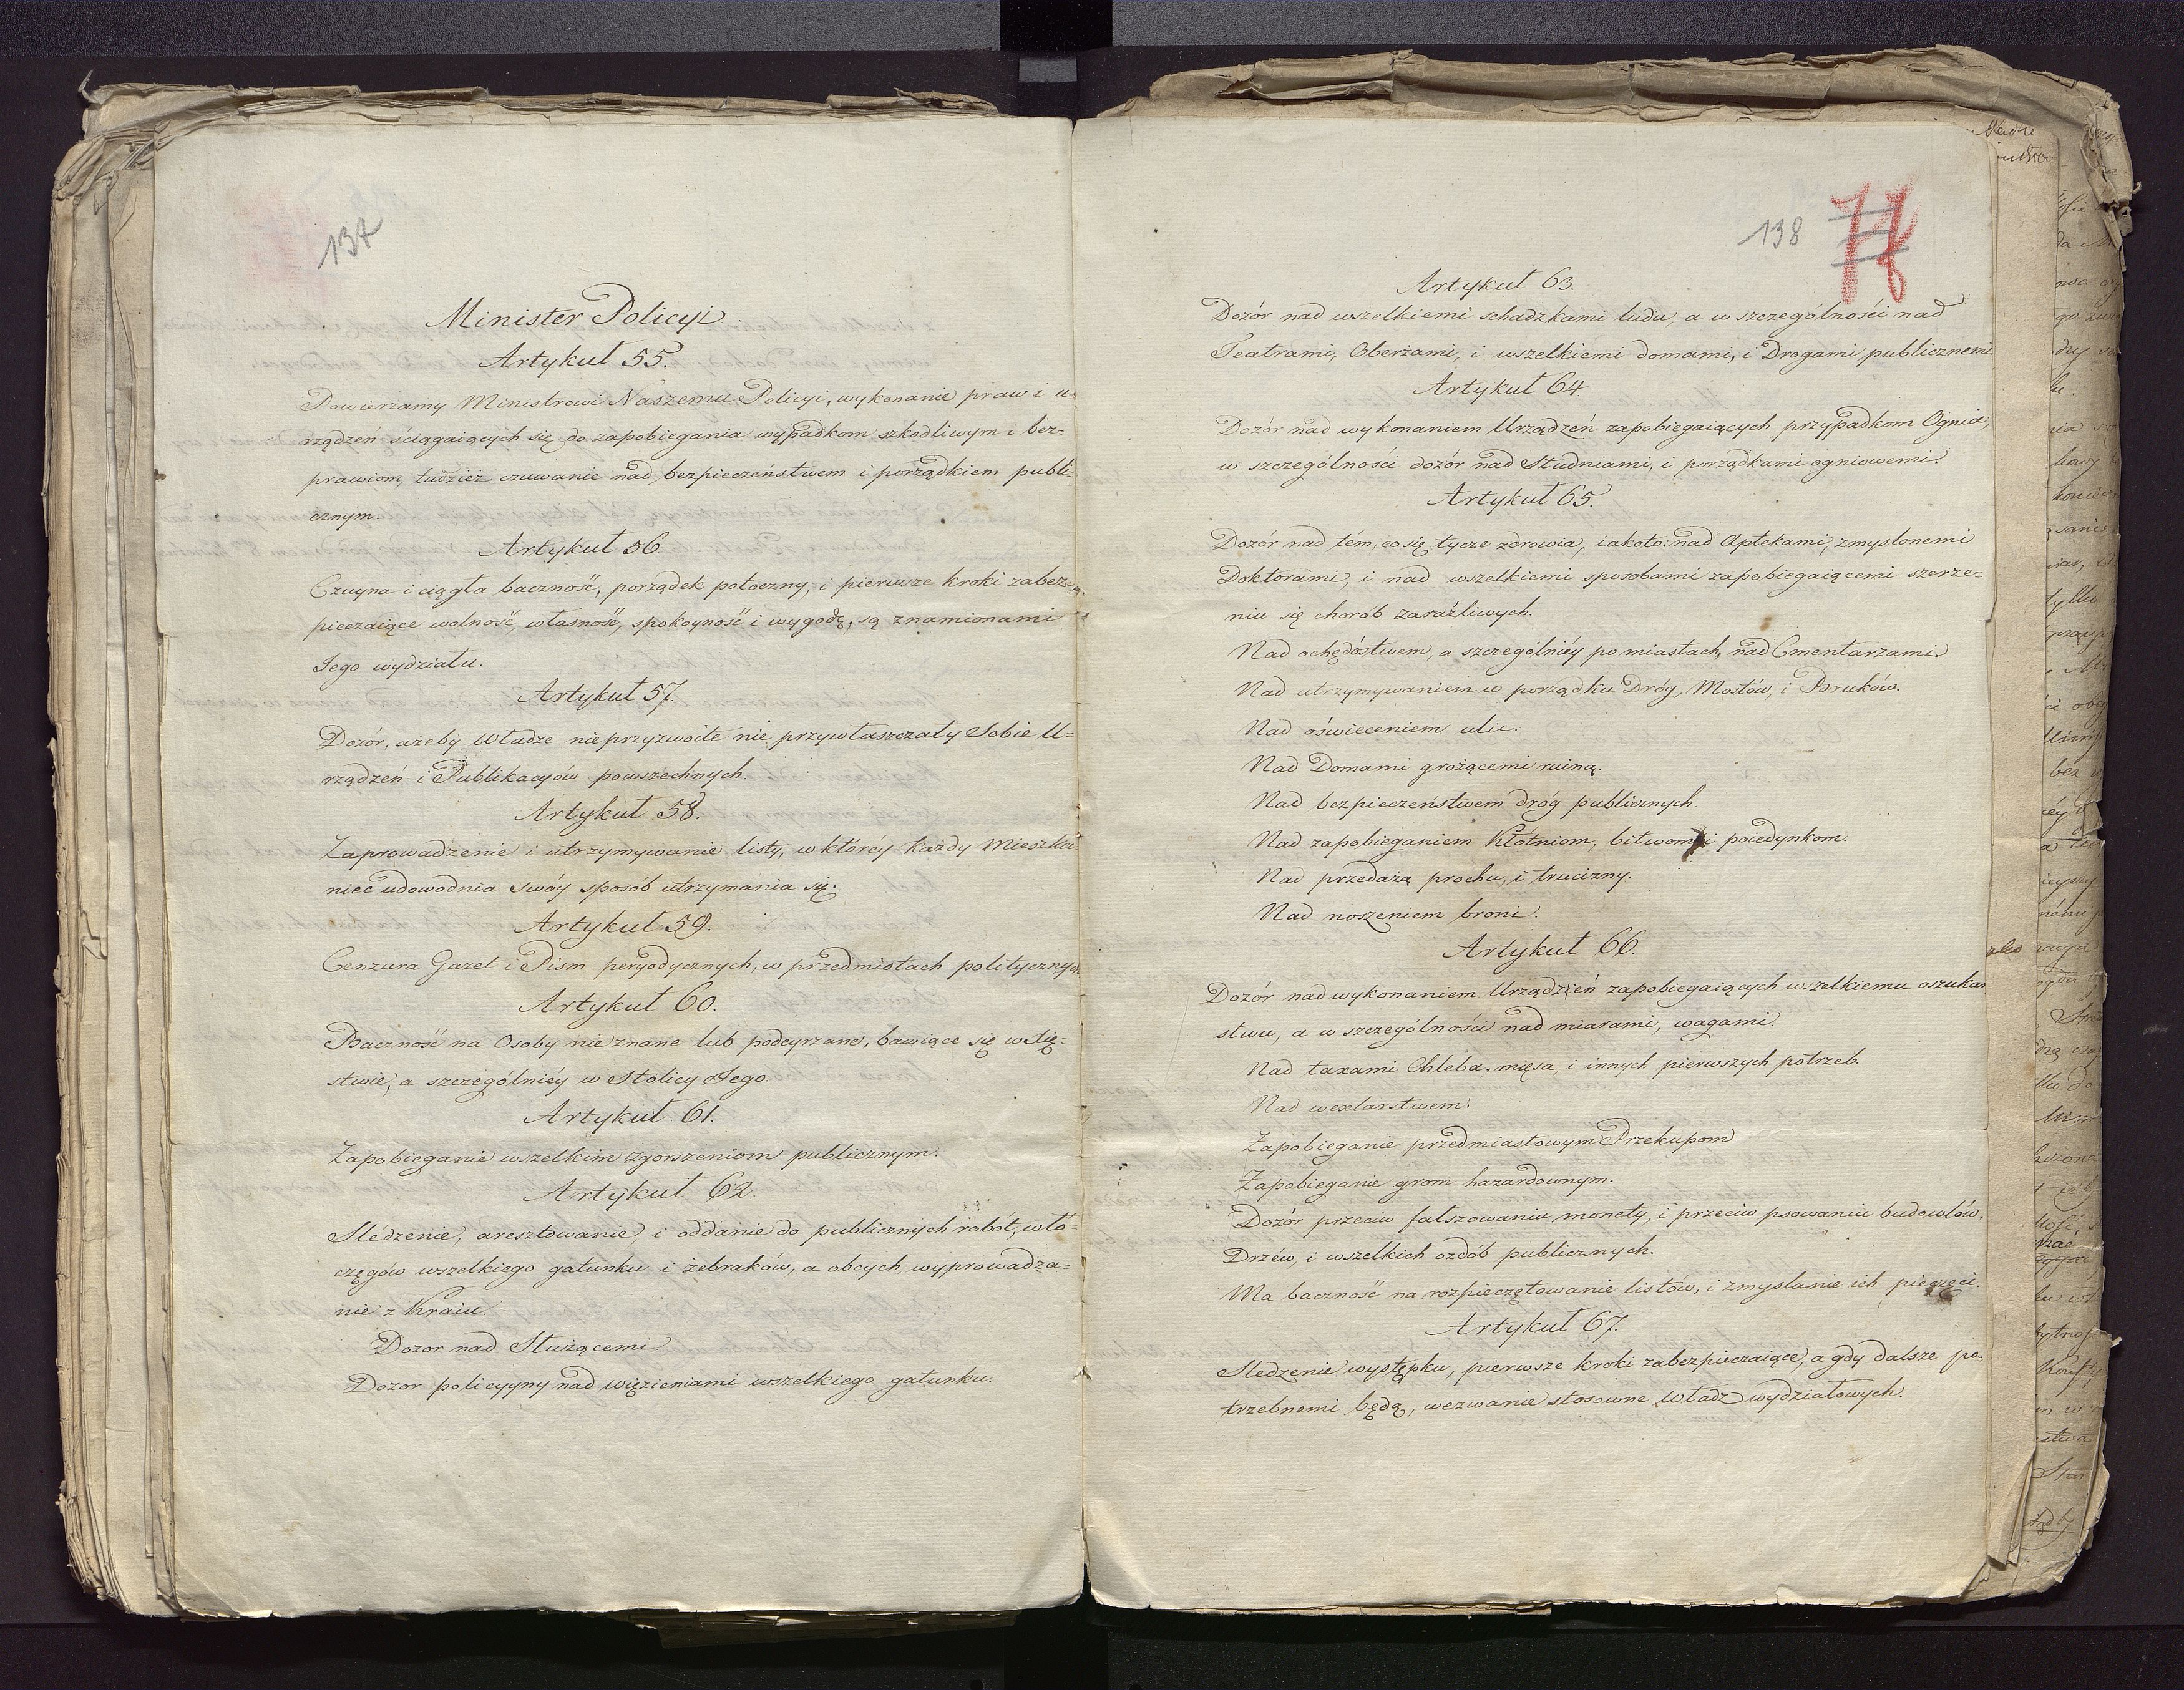 137
Minister Policyi.
Artykuł 55.
Powierzamy Ministrowi Naszemu Policyi, wykonanie praw i u-
rządzeń ściągaiących się do zapobiegania wypadkom szkodliwym i bez=
prawiom, tudzież czuwanie nad bezpieczeństwem i porządkiem publi=
cznym.
Artykuł 56.
Czuyna i ciągła baczność, porządek potoczny, i pierwsze kroki zabez=
pieczaiące wolność, własność, spokoyność i wygodę, są znamionami
Jego wydziału.
Artykuł 57.
Dozór, ażeby Władze nieprzyzwoite nie przywłaszczały Sobie U=
rządzeń i Publikacyów powszechnych.
Artykuł 58.
Zaprowadzenie i utrzymywanie listy, w któréy każdy Mieszka=
niec udowodnia swóy sposób utrzymania się.
Artykuł 59.
Cenzura Gazet i Pism peryodycznych, w przedmiotach politycznych
Artykuł 60.
Baczność na Osoby nieznane lub podeyrzane, bawiące się w Xię=
stwie, a szczególniéy w Stolicy Jego.
Artykuł 61.
Zapobieganie wszelkim zgorszeniom publicznym.
Artykuł 62.
Slédzenie, aresztowanie, i oddanie do publicznych robót, włó=
częgów wszelkiego gatunku i żebraków, a obcych wyprowadza=
nie z Kraiu.
Dozor nad Służącemi
Dozor policyyny nad więzieniami wszelkiego gatunku.
138
Artykuł 63.
Dozór nad wszelkiemi schadzkami ludu, a w szczególności nad
Teatrami, Oberżami, i wszelkiemi domami, i Drogami publicznemi
Artykuł 64.
Dozór nad wykonaniem Urządzeń zapobiegaiących przypadkom Ognia,
w szczególności dozór nad Studniami, i porządkami ogniowemi.
Artykuł 65.
Dozór nad tém, co się tycze zdrowia, iakoto: nad Aptekami, zmyslonemi
Doktorami, i nad wszelkiemi sposobami zapobiegaiącemi szerze=
niu się chorób zaraźliwych.
Nad ochędóstwem, a szczególniéy po miastach, nad Cmentarzami.
Nad utrzymywaniem w porządku Dróg, Mostów, i Bruków.
Nad oświeceniem ulic.
Nad Domami grożącemi ruiną.
Nad bezpieczeństwem dróg publicznych.
Nad zapobieganiem Kłótniom, bitwom i poiedynkom.
Nad przedażą prochu, i trucizny.
Nad noszeniem broni.
Artykuł 66.
Dozór nad wykonaniem Urządzień zapobiegaiących wszelkiemu oszukań
stwu, a w szczególności nad miarami, wagami.
Nad taxami Chléba, mięsa, i innych pierwszych potrzeb.
Nad wexlarstwem.
Zapobieganie przedmiastowym Przekupom
Zapobieganie grom hazardownym.
Dozór przeciw fałszowaniu monety, i przeciw psowaniu budowlów,
Drzéw, i wszelkich ozdób publicznych.
Ma baczność na rozpieczętowanie listów, i zmyslanie ich pieczęci.
Artykuł 67.
Sledzenie występku, pierwsze kroki zabezpieczaiące, a gdy dalsze po=
trzebnemi będą, wezwanie stosowne Władz wydziałowych.